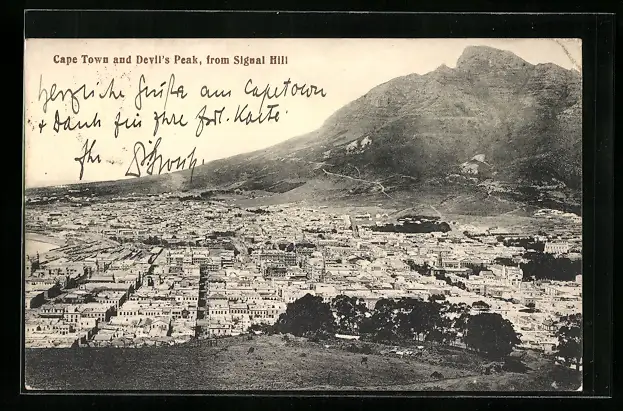 Cape Town and Devil's Peak, from Signal Hill
Herzliche Grüße aus Capetown
+ Dank für Ihre frdl. Karte.
Ihr